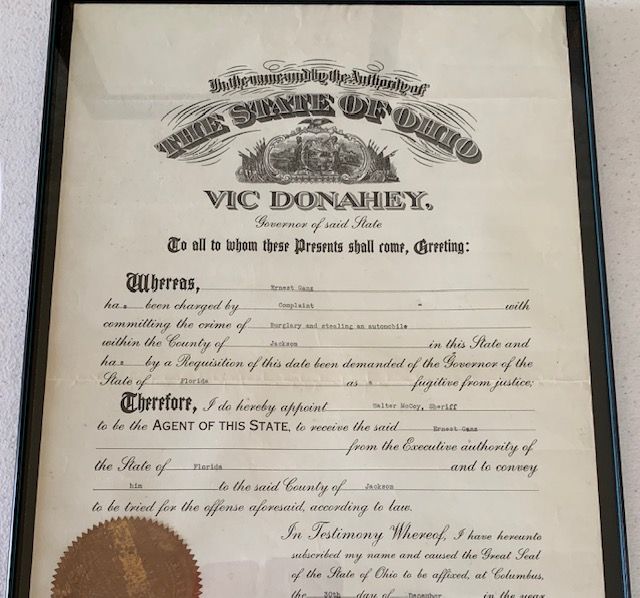 In the name and by the Authority of
THE STATE OF OHIO
VIC DONAHEY,
Governor of said State
To all to whom these Presents shall come, Greeting:
Whereas, Ernest Ganz
has been charged by Complaint - with
committing the crime of Burglary and stealing an automobile
within the County of Jackson in this State and
has by a Requisition of this date been demanded of the Governor of the
State of Florida as a fugitive from justice;
Therefore, I do hereby appoint Walter McCoy, Sheriff
to be the AGENT OF THIS STATE, to receive the said Ernest Ganz
from the Executive authority of
the State of Florida and to convey
him to the said County of Jackson
to be tried for the offense aforesaid, according to law.
In Testimony Whereof, I have hereunto
subscribed my name and caused the Great Seal
of the State of Ohio to be affixed, at Columbus,
the 30th day of December in the year